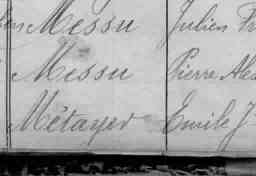 Messu Julien
Messu Pierre
Métayer Emile J